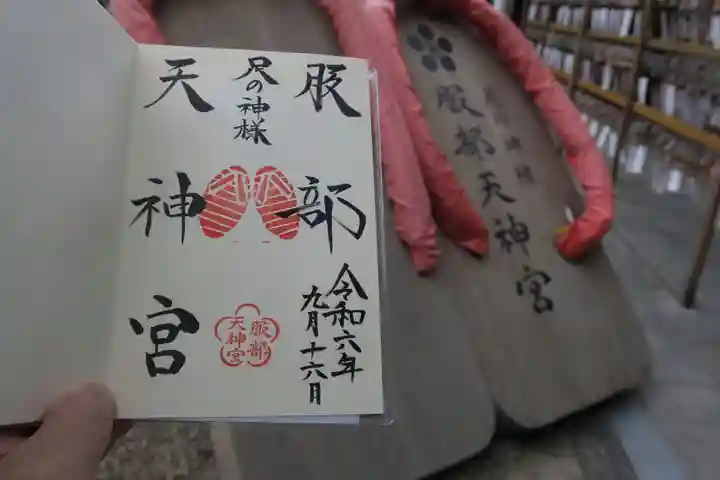 服部
足の神様
天神宮
令和六年
九月十六日
服部
天神宮
足の神様
服部天神宮